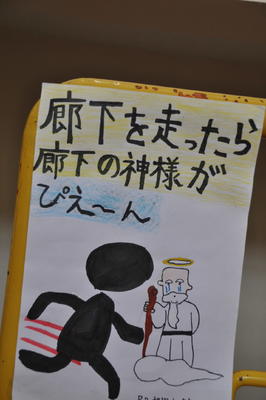 廊下を走ったら
廊下の神様が
ぴえ〜ん